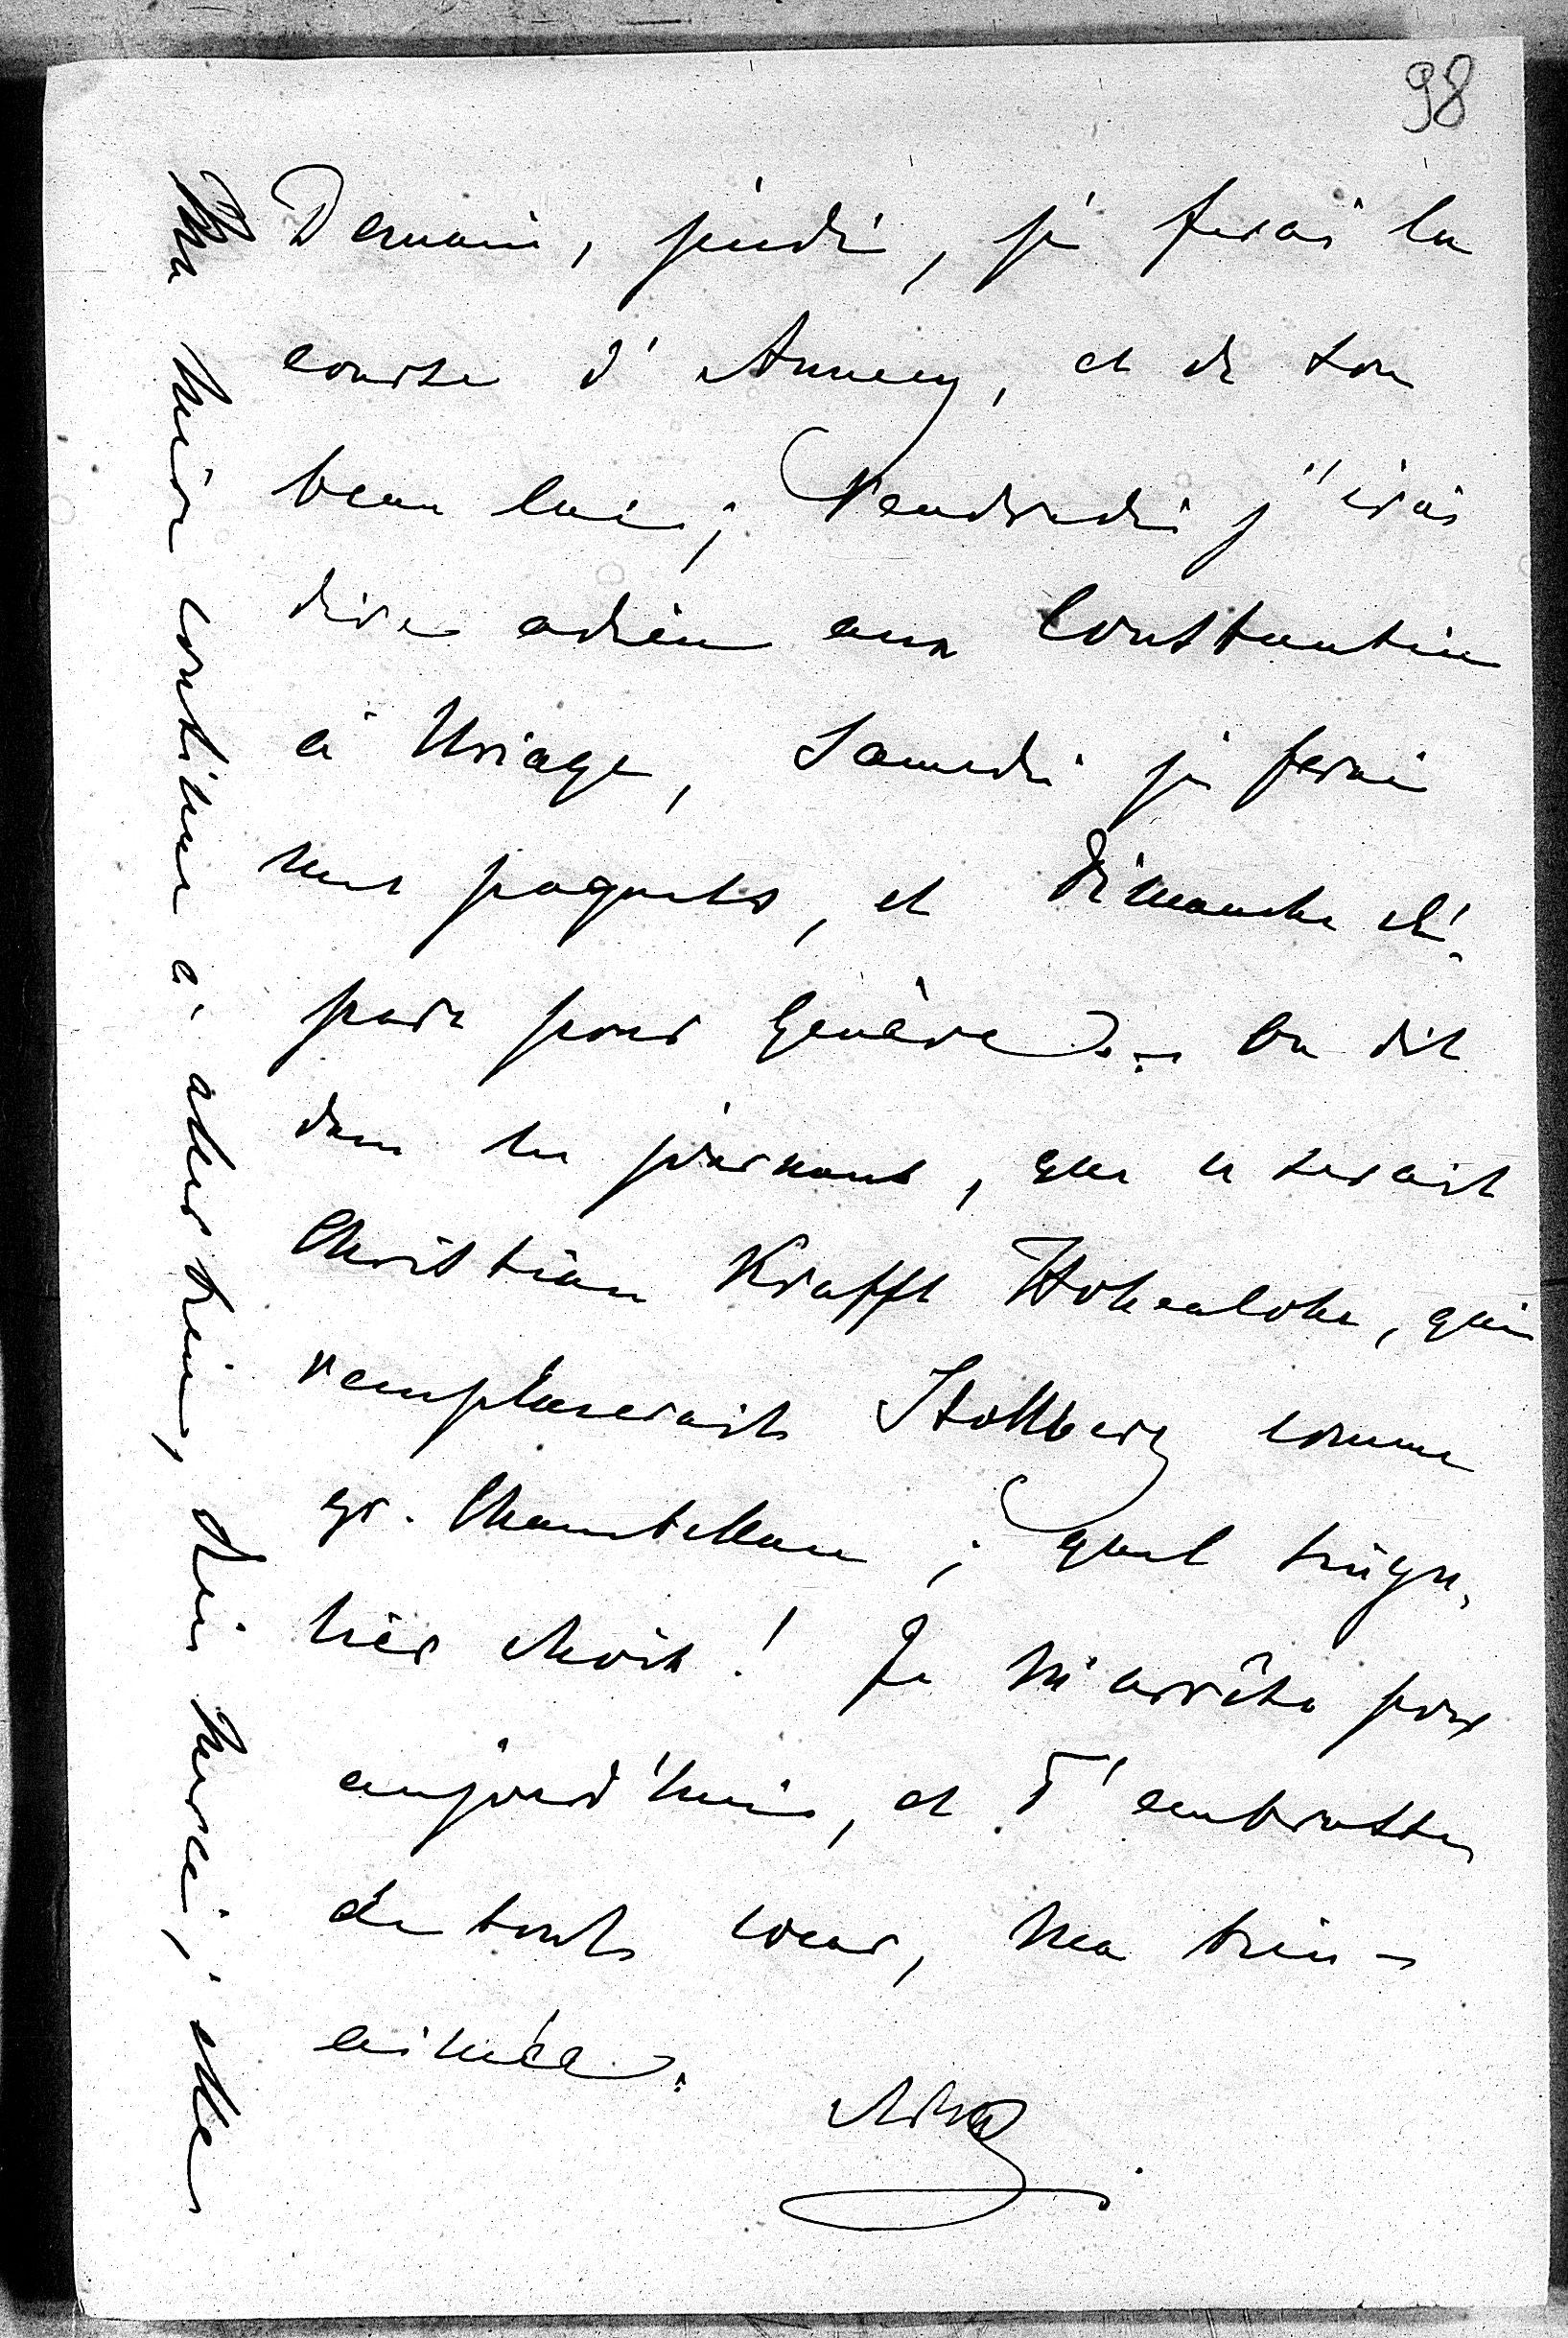 98
Demain, jeudi, je ferai la
course d'Annecy, et de son
beau lac; Vendredi j'irai
dire adieu aux Constantin
à Uriage, Samedi je ferai
mes paquets, et Dimanche
pars pour Genève. – On dit
dans les journaux, que ce serait
Christian Krafft Hohenlohe, qui
remplacerait Stollberg comme
gr. Chambellan; quel singu-
lier choix! Je m'arrête pour
aujourd'hui, et T'embrasse
de tout coeur, ma bien-
aimée.
Ma mère continue à aller bien, Dieu merci; elle